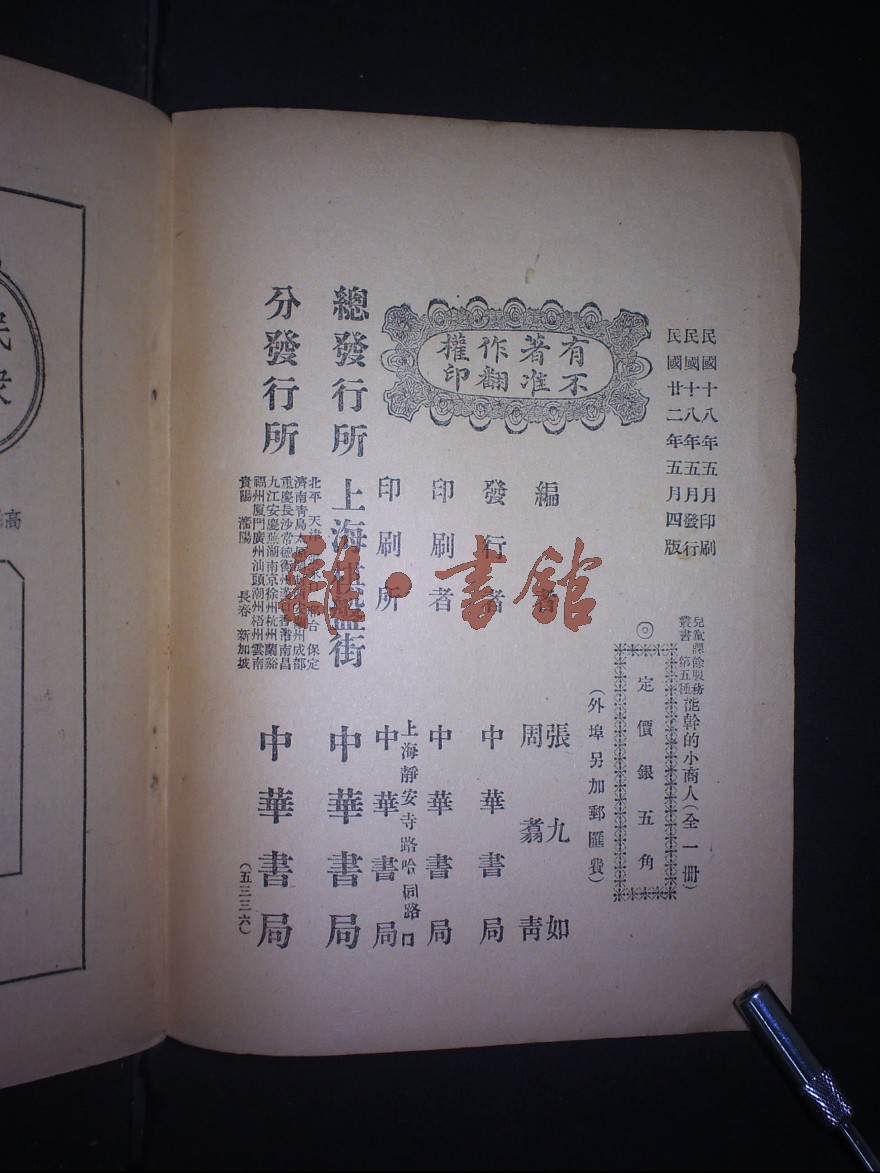 民國十八年五月印刷
民國十八年五月發行
民國廿二年五月四版
兒童課餘服務
叢書第五種
能幹的小商人(全一冊)
◎定價銀五角
(外埠另加郵匯費)
有著作權
不准翻印
編者 張九如
周翥青
發行者 中華書局
印刷者 中華書局
印刷所 上海靜安寺路哈同路口
中華書局
總發行所 上海盤街 中華書局
分發行所
北平 天津 台 保定
濟南 青島 太 州 成都
重慶 長沙 常德 香港 南昌
九江 安慶 蕪湖 南京 徐州 杭州 蘭谿
福州 厦門 廣州 汕頭 潮州 梧州 雲南
貴陽 瀋陽 長春 新加坡
中華書局
(五三三六)
民眾
高
雜·書館